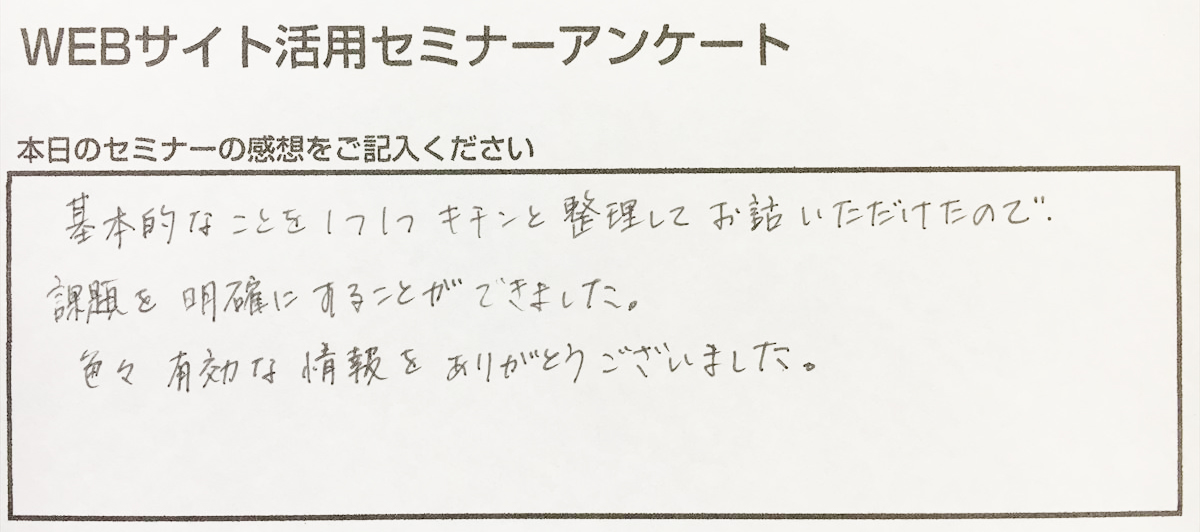 WEBサイト活用セミナーアンケート
本日のセミナーの感想をご記入ください
基本的なことを1つ1つキチンと整理してお話いただけたので、
課題を明確にすることができました。
色々有効な情報をありがとうございました。